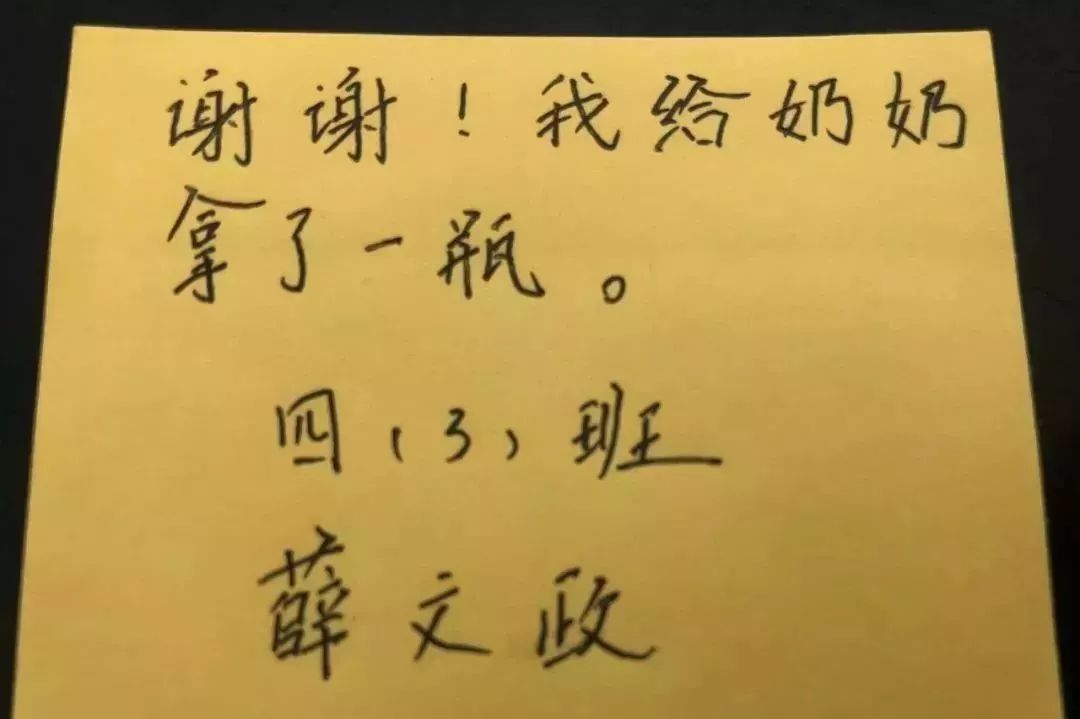 谢谢！我给奶奶
拿了一瓶。
四（3）班
薛文政